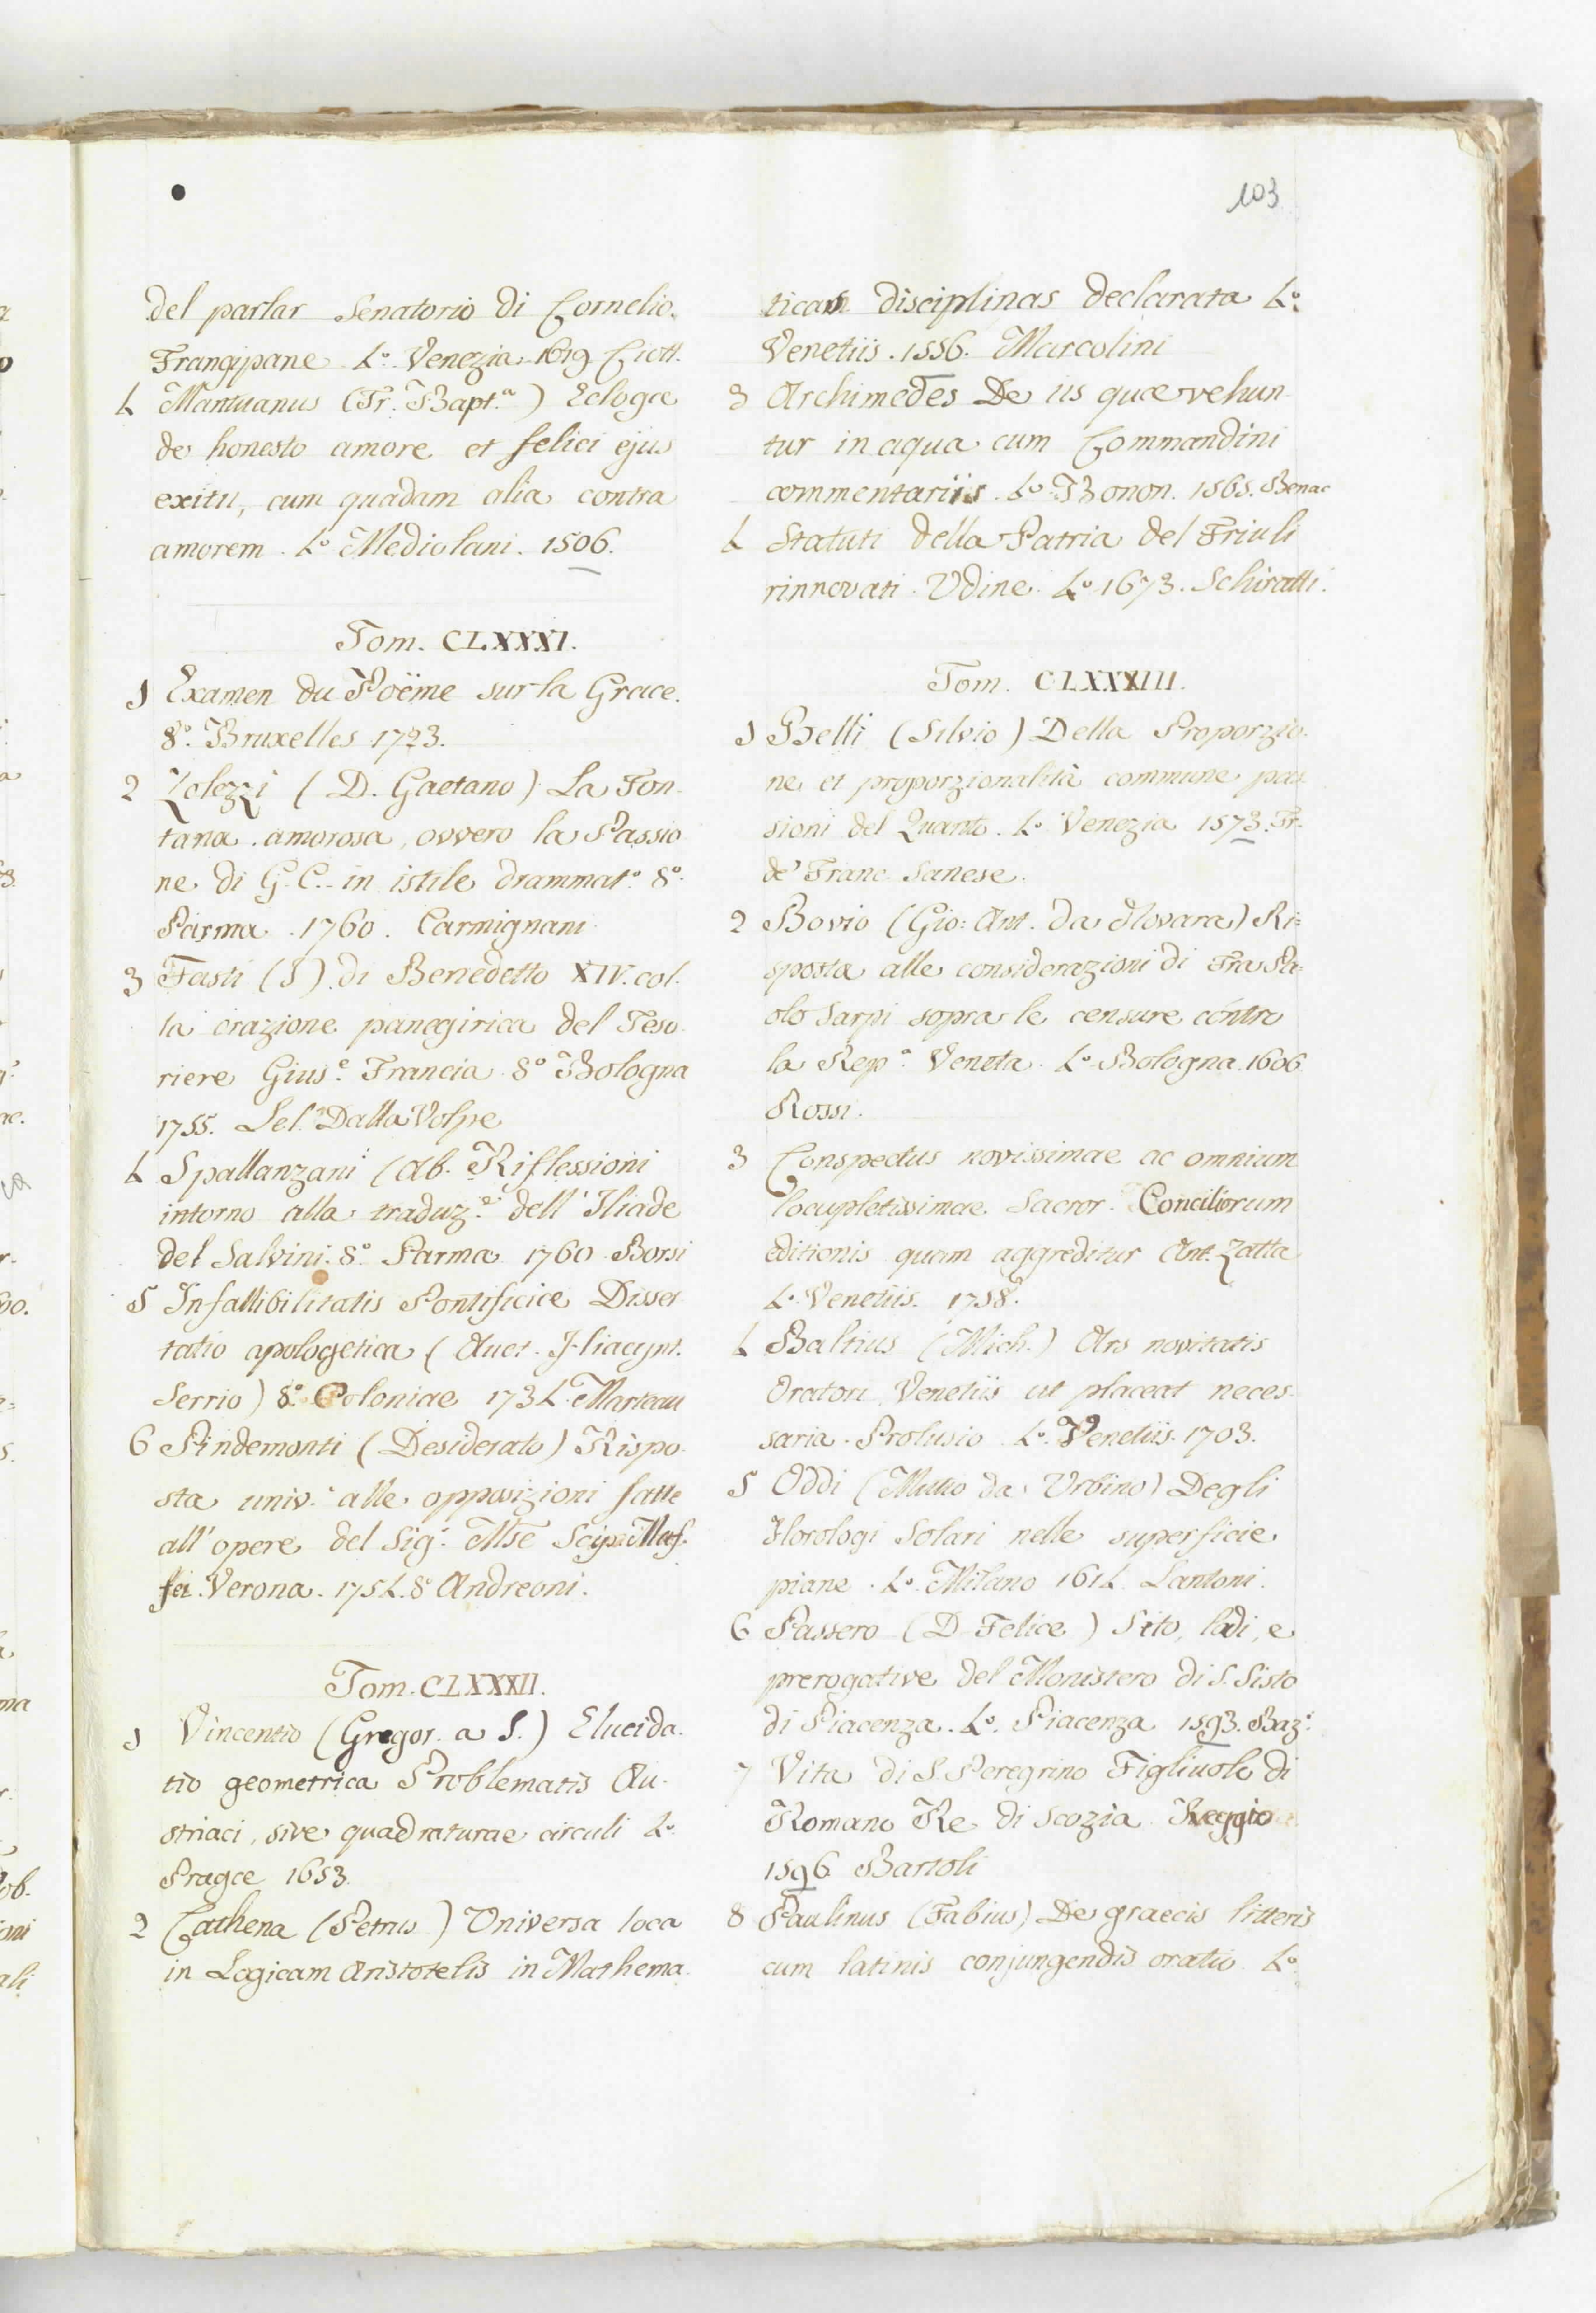 103
del parlar Senatorio di Cornelio
Frangipane 4.º Venezia 1619 Ciott.
4 Mantuanus (Fr. Bapt.ª) Eclogæ
de honesto amore et felici ejus
exitu, cum quadam alia contra
amorem. 4.º Mediolani. 1506.
Tom. CLXXXI.
1 Examen du Poëme sur la Grace.
8.º Bruxelles 1723.
2 Zolezzi (D. Gaetano) La Fon-
tana amorosa, ovvero la Passio
ne di G. C. in istile drammat.º 8.º
Parma. 1760. Carmignani
3 Fasti (I) di Benedetto XIV. col-
la orazione panegirica del Teso-
riere Gius.e Francia 8.º Bologna
1755. Lel. Dalla Volpe
4 Spallanzani (Ab. Riflessioni
intorno alla traduz.e dell' Iliade
del Salvini. 8.º Parma 1760 Borsi
5 Infallibilitatis Pontificiæ Disser
tatio apologetica (Auct. Hiacynt.
Serrio) 8.º Coloniae 1734. Marteau
6 Pindemonti (Desiderato) Rispo-
sta univ. alle opposizioni fatte
all' opere del Sig.r Mse Scip. Maf-
fei. Verona. 1754. 8.º Andreoni.
Tom. CLXXXII.
1 Vincentio (Gregor. a S.) Elucida-
tio geometrica Problematis Au-
striaci, sive quadraturae circuli 4.º
Pragæ 1653.
2 Cathena (Petrus) Universa loca
in Logicam Aristotelis in Mathema-
ticas disciplinas declarata 4.º
Venetiis. 1556. Marcolini
3 Archimedes De iis quæ vehun-
tur in aqua cum Commandini
commentariis. 4.º Bonon. 1565. Benac
4 Statuti della Patria del Friuli
rinnovati. Udine. 4.º 1673. Schiratti.
Tom. CLXXXIII.
1 Belli (Silvio) Della Proporzio-
ne et proporzionalità commune pas
sioni del Quanto. 4.º Venezia 1573. Fr.
de' Franc. Sanese.
2 Bovio (Gio: Ant. da Novara) Ri=
sposta alle considerazioni di Fra Pa=
olo Sarpi sopra le censure contro
la Rep.ª Veneta 4.º Bologna. 1606
Rossi.
3 Conspectus novissimae ac omnium
locupletissimae Sacror. Conciliorum
editionis quam aggreditur Ant. Zatta
4.º Venetiis. 1758.
4 Baltius (Mich.) Ars novitatis
Oratori Venetiis ut placeat neces-
saria. Prolusio 4.º Venetiis. 1703.
5 Oddi (Mutio da Urbino) Degli
Horologi Solari nelle superficie
piane. 4.º Milano 1614. Lantoni.
6 Passero (D. Felice) Sito, lodi, e
prerogative del Monistero di S. Sisto
di Piacenza. 4.º Piacenza 1593. Baz.i
7 Vita di S. Peregrino Figliuolo di
Romano Re di Scozia. Reggio
1596 Bartoli
8 Paulinus (Fabius) De graecis litteris
cum latinis conjungendis oratio 4.º